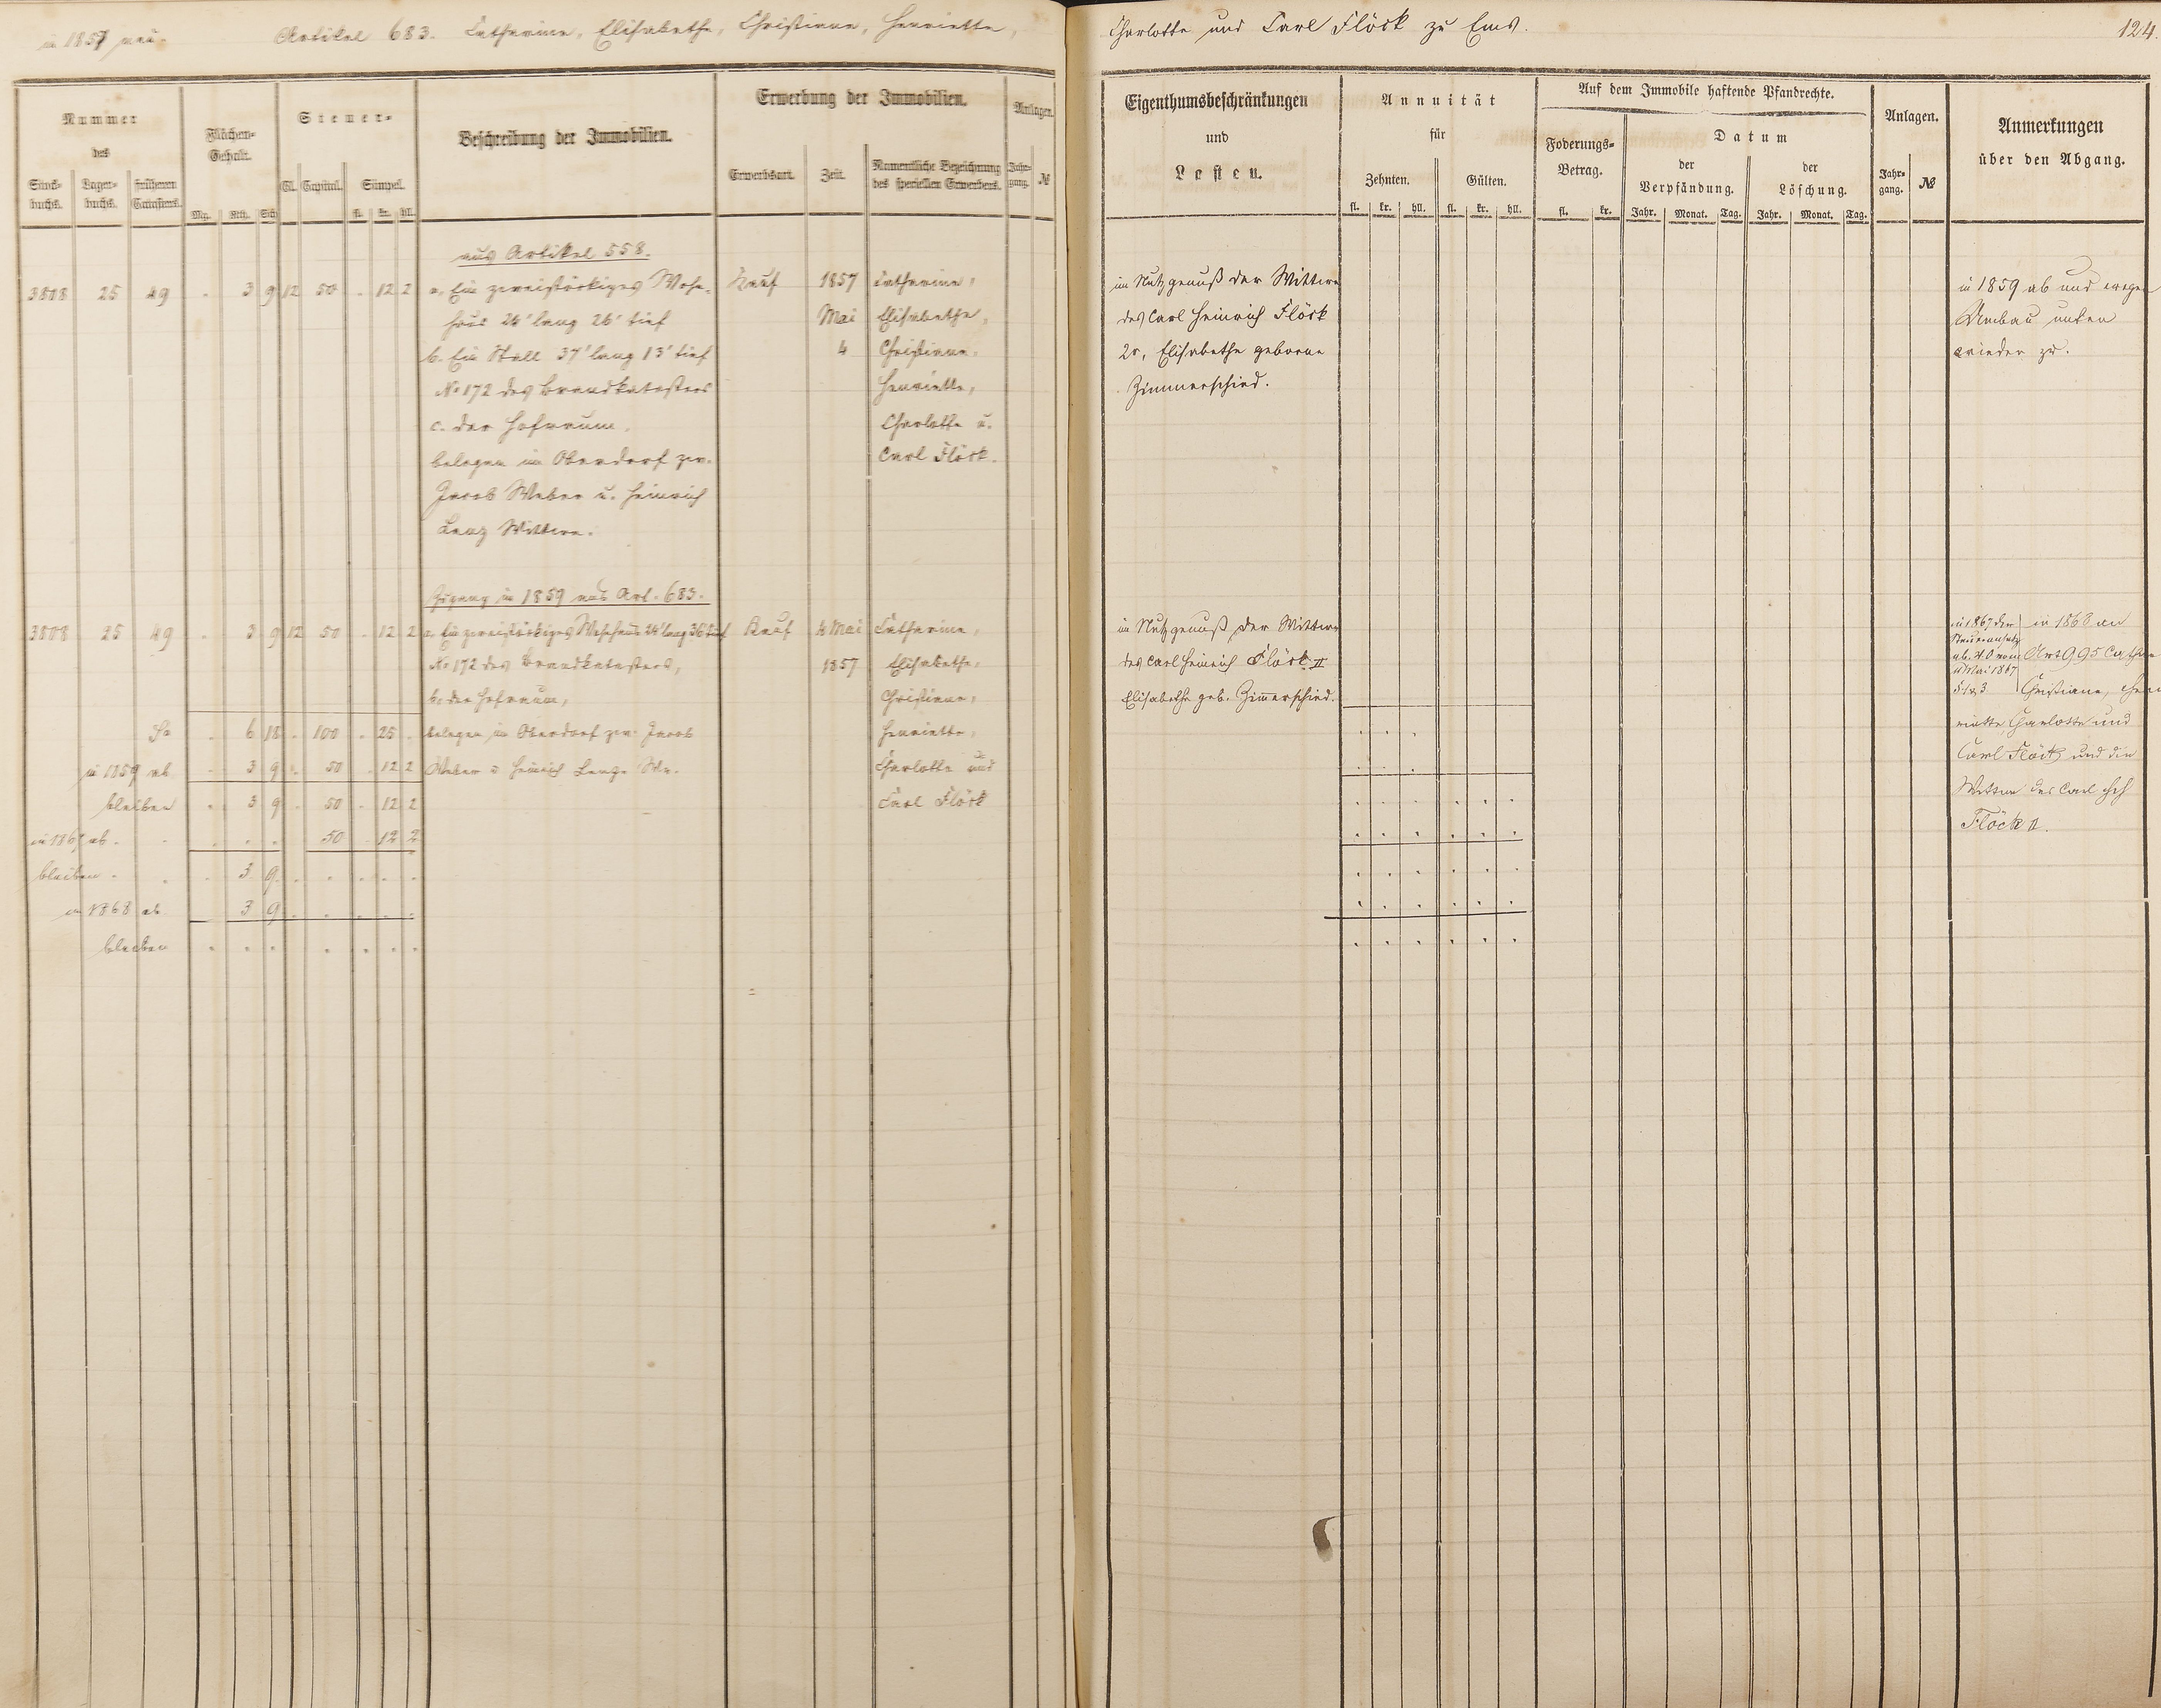 in 1857 neu. Artikel 683. Catharine, Elisabethe, Christiane, Henriette,
Nummer
des
Stock-
buchs.
Lager-
buchs.
früheren
Catasters.
Flächen-
Gehalt.
Mg. Rth. Sch.
Steuer-
Cl. Capital. Simpel.
fl. kr. hll.
Beschreibung der Immobilien.
Erwerbung der Immobilien.
Erwerbsart. Zeit.
Namentliche Bezeichnung
des speciellen Erwerbers.
Anlagen.
Jahr-
gang.
№
aus Artikel 558.
3808 25 49 . 3 9 12 50 . 12 2 a. Ein zweistöckiges Wohn- Kauf 1857 Catharine,
haus 24' lang 26' tief Mai Elisabethe,
b. Ein Stall 37' lang 13' tief 4 Christiane,
No 172 des Brandkatasters Henriette,
c. der Hofraum, Charlotte u.
belegen im Oberdorf zw. Carl Flöck.
Jacob Weber u. Heinrich
Lenz Wittwe.
Zugang in 1859 aus Art. 683.
3808 25 49 . 3 9 12 50 . 12 2 a. Ein zweistöckiges Wohnhaus 24' lang 36' tief Kauf 4 Mai Catharine,
No 172 des Brandkatasters, 1857 Elisabethe,
b. der Hofraum, Christiane,
Sa . 6 18 . 100 . 25 . belegen im Oberdorf zw. Jacob Henriette,
in 1859 ab . 3 9 . 50 . 12 2 Weber u Heinrich Lenz. We. Charlotte und
bleiben . 3 9 . 50 . 12 2 Carl Flöck
in 1867 ab . . . . 50 . 12 2
bleiben . . . 3 9 . . . . .
in 1868 ab 3 9 . . . . .
bleiben . . . . . . .
Charlotte und Carl Flöck zu Ems. 124.
Eigenthumsbeschränkungen
und
Lasten.
Annuität
für
Zehnten. Gülten.
fl. kr. hll. fl. kr. hll.
Auf dem Immobile haftende Pfandrechte.
Foderungs-
Betrag.
fl. kr.
Datum
der
Verpfändung.
der
Löschung.
Jahr. Monat. Tag. Jahr. Monat. Tag.
Anlagen.
Jahr-
gang.
№
Anmerkungen
über den Abgang.
im Nutzgenuß der Wittwe
des Carl Heinrich Flöck
2r, Elisabethe geborne
Zimmerschied.
in 1859 ab und wegen
Umbau unten
wieder zu.
im Nutzgenuß der Wittwe
des Carl Heinrich Flöck II
Elisabethe geb. Zimmerschied.
in 1867 der
Steueransatz
ab. V.O vom
Mai 1867
in 1868 an
Art 995 Cathar
Christiane, Hen
riette, Charlotte und
Carl Flöck und die
Wittwe des Carl
Flöck II.